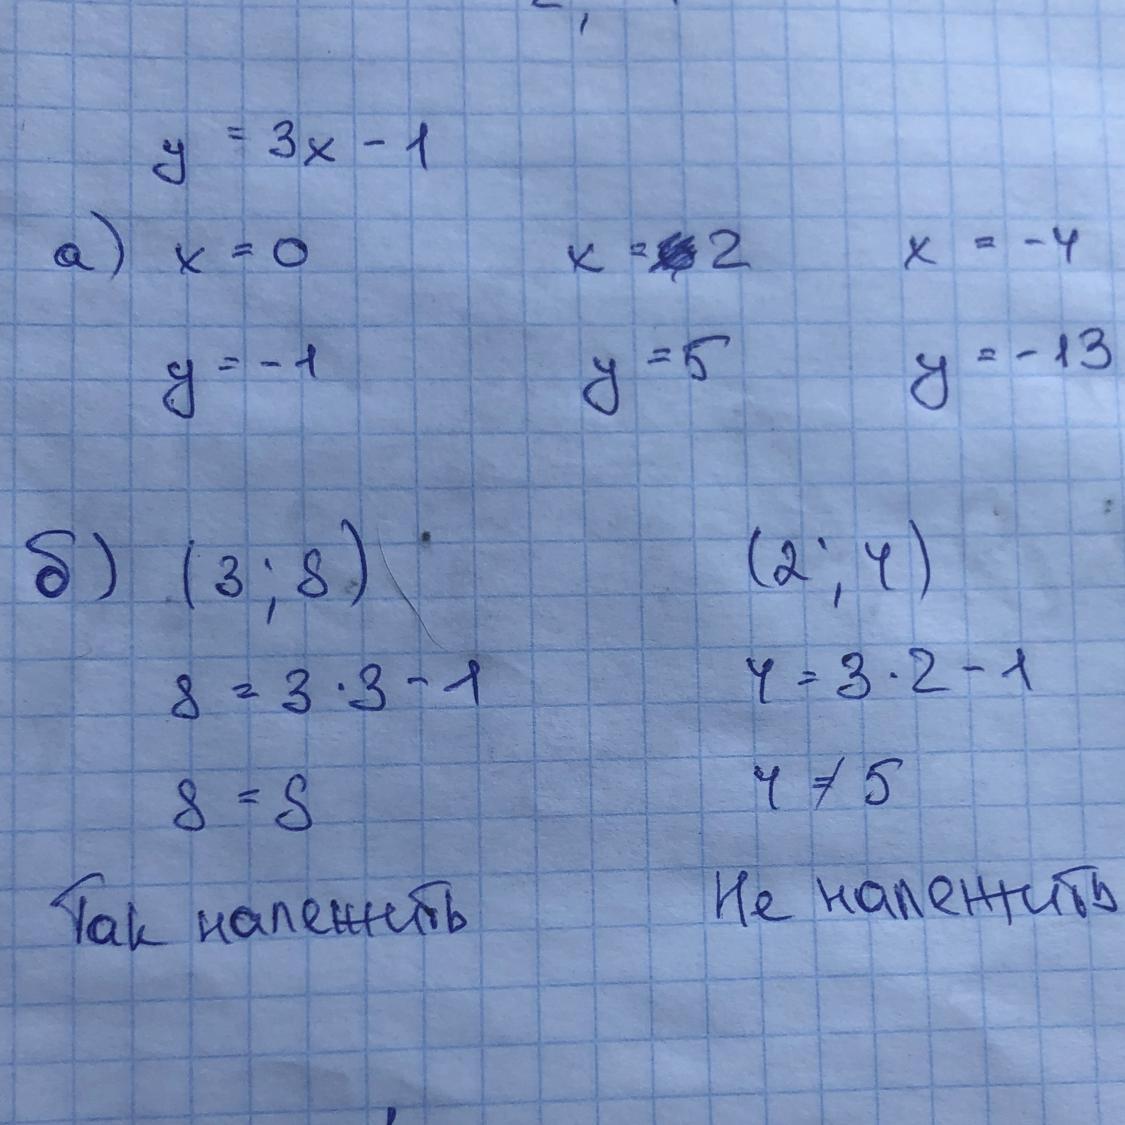 y = 3x - 1
а) x = 0 x = 2 x = -4
y = -1 y = 5 y = -13
б) (3 ; 8) (2 ; 4)
8 = 3 · 3 - 1 4 = 3 · 2 - 1
8 = 8 4 ≠ 5
Так належить Не належить